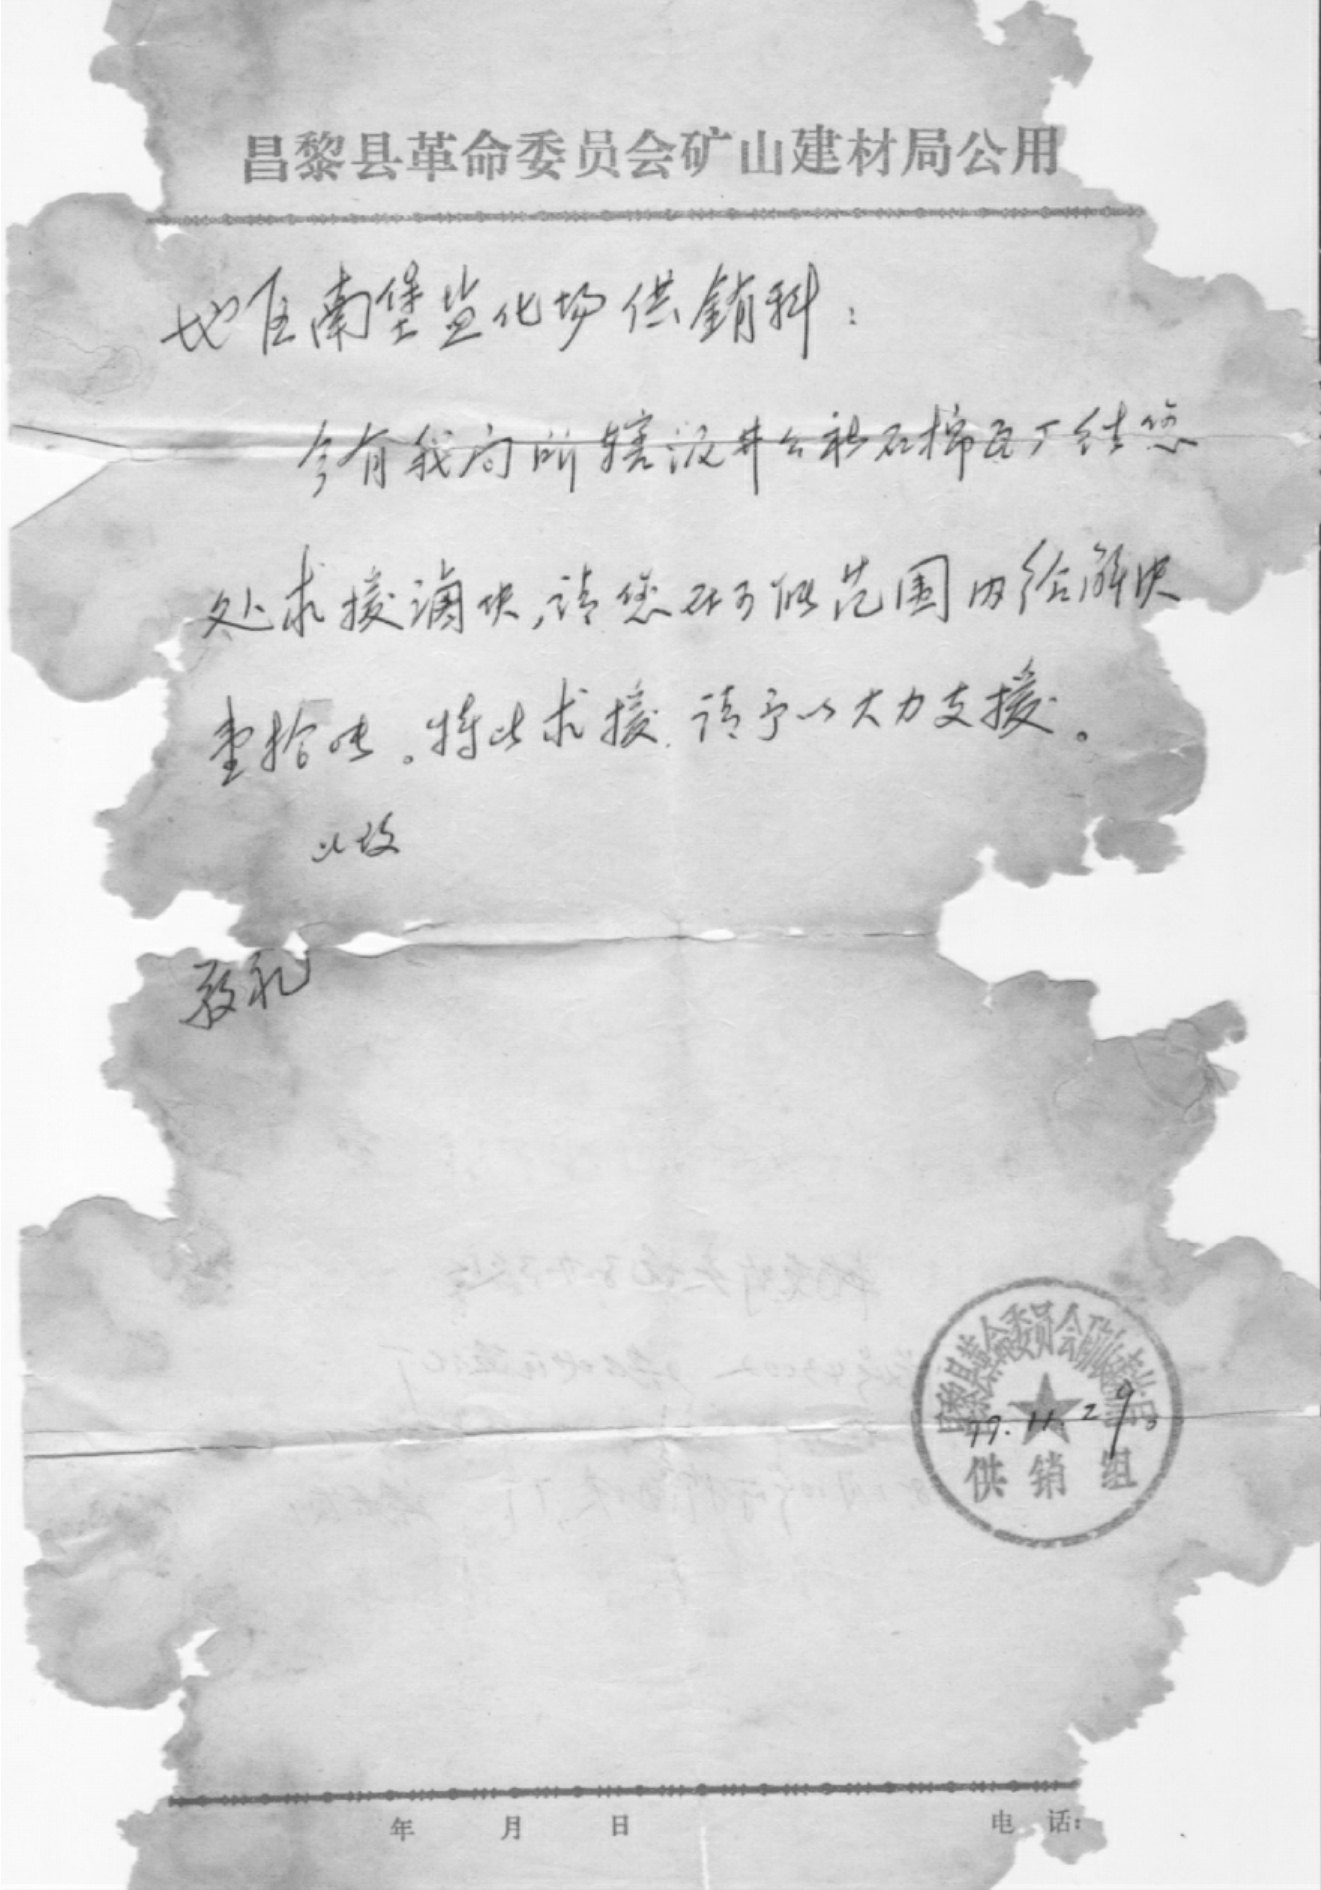 昌黎县革命委员会矿山建材局公用
地区南堡盐化场供銷科：
今有我局所辖泥井公社石棉瓦厂结您
处求援滷块,请您在可能范围内给解决
壹拾吨。特此求援.请予以大力支援。
此致
敬礼
昌黎县革命委员会矿山建材局
77.11.29
供销组
年 月 日 电 话: